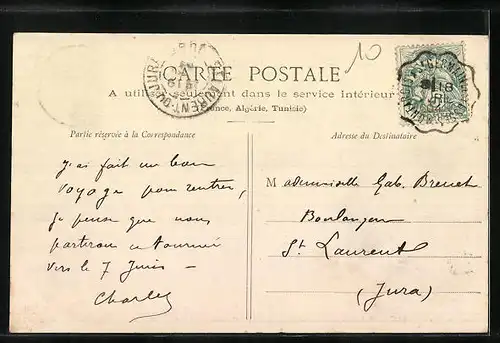 10
CARTE POSTALE
A utiliser seulement dans le service intérieur
(France, Algérie, Tunisie)
Partie réservée à la Correspondance
Adresse du Destinataire
J'ai fait un bon
voyage pour rentrer,
je pense que nous
partirons en tournée
vers le 7 Juin -
Charles
Mademoiselle Gab. Brenet
Boulanger
St Laurent
(Jura)